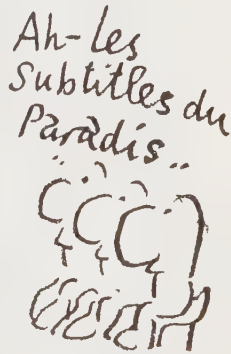 Ah-les
Subtitles du
Paradis..